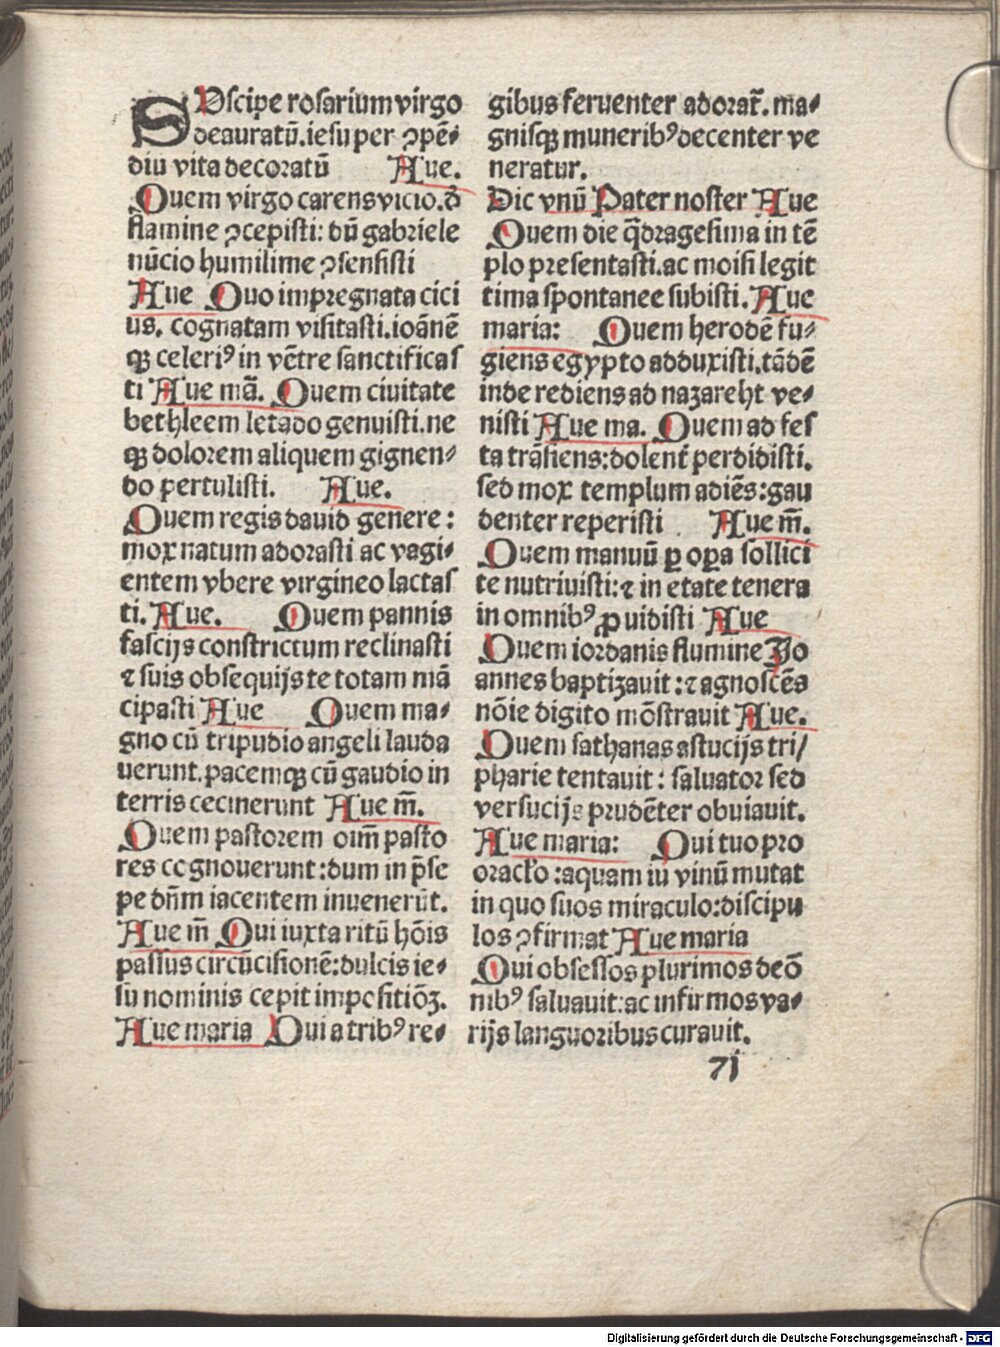 SUscipe rosarium virgo
deauratū.iesu per ꝯpē⸗
diū vita decoratū Aue.
Quem virgo carens vicio.đ
flamine ꝯcepisti: dū gabriele
nūcio humilime ꝯsensisti
Aue Quo impregnata cici
us. cognatam visitasti.ioānē
qꝫ celeriꝰ in vētre sanctificas
ti Aue mā. Quem ciuitate
bethleem letādo genuisti.ne
qꝫ dolorem aliquem gignen⸗
do pertulisti. Aue.
Quem regis dauid genere:
mox natum adorasti ac vagi⸗
entem vbere virgineo lactas
ti. Aue. Quem pannis
fascijs constrictum reclinasti
⁊ suis obsequijs te totam mā
cipasti Aue Quem ma⸗
gno cū tripudio angeli lauda
uerunt.pacemqꝫ cū gaudio in
terris cecinerunt Aue m̄.
Quem pastorem oīm pasto
res cognouerunt:dum in p̄se
pe dn̄m iacentem inuenerūt.
Aue m̄ Qui iuxta ritū hōis
passus circūcisionē:dulcis ie⸗
su nominis cepit impositiōꝫ.
Aue maria Qui a tribꝰ re⸗
gibus feruenter adorat̄. ma⸗
gnisqꝫ muneribꝰ decenter ve
neratur.
Dic vnū Pater noster Aue
Quem die q̄dragesima in tē
plo presentasti.ac moisi legit
tima spontanee subisti. Aue
maria: Quem herodē fu⸗
giens egypto adduxisti.tādē
inde rediens ad nazareht ve⸗
nisti Aue ma. Quem ad fes
ta trāsiens:dolent̄ perdidisti.
sed mox templum adiēs:gau
denter reperisti Aue m̄.
Quem manuū ꝑ oꝑa sollici
te nutriuisti:⁊ in etate tenera
in omnibꝰ ꝓuidisti Aue
Quem iordanis flumine Jo
annes baptizauit:⁊ agnoscēs
nōie digito mōstrauit Aue.
Quem sathanas astucijs tri/
pharie tentauit: saluator sed
versucijs prudēter obuiauit.
Aue maria: Qui tuo pro
oracl̄o:aquam iū vinū mutat
in quo suos miraculo:discipu
los ꝯfirmat Aue maria
Qui obsessos plurimos deō
nibꝰ saluauit:ac infirmos va⸗
rijs languoribus curauit.
71
Digitalisierung gefördert durch die Deutsche Forschungsgemeinschaft - DFG